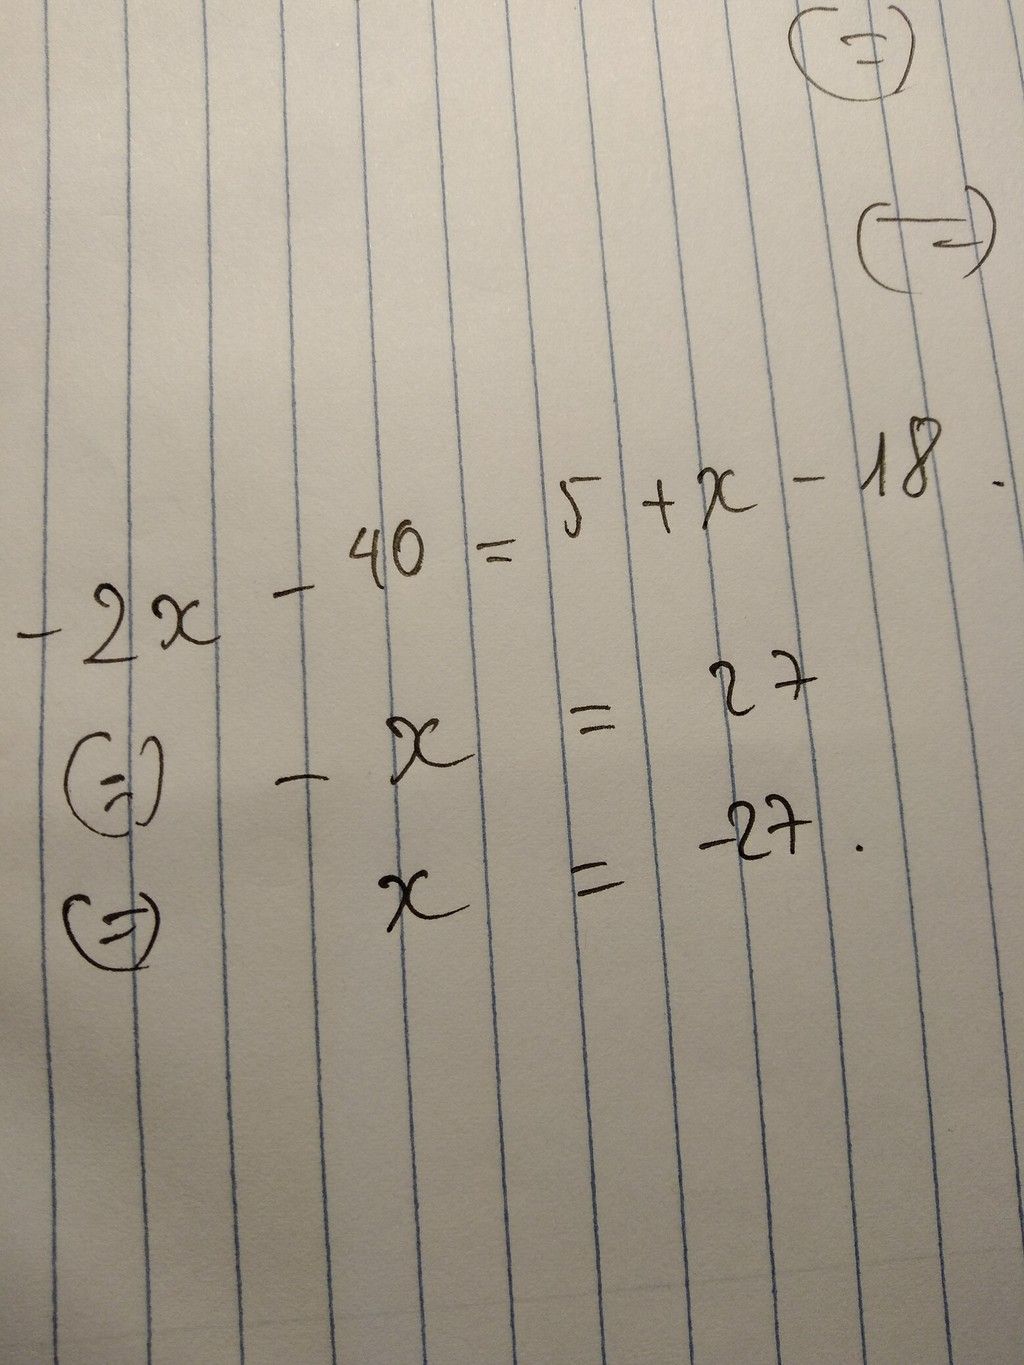 (=)
(=)
-2x - 40 = 5 + x - 18.
(=) - x = 27
(=) x = -27.